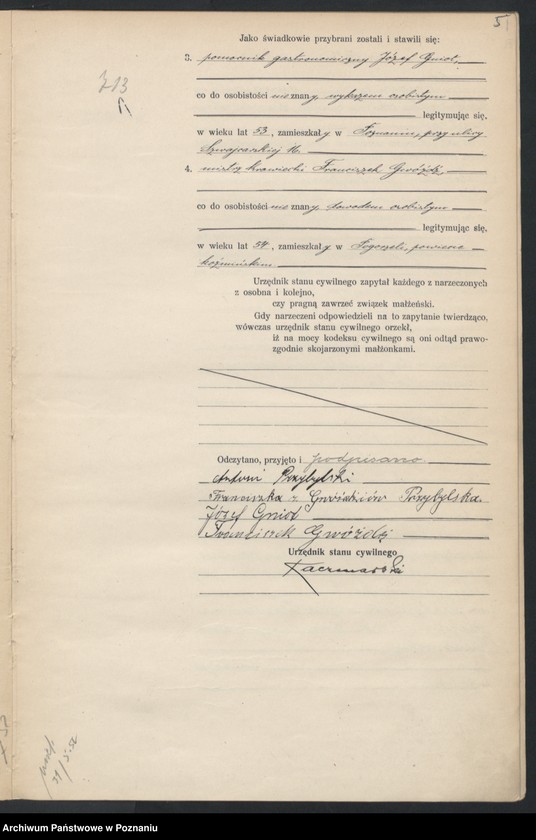 5
Jako świadkowie przybrani zostali i stawili się:
213
3. pomocnik gastronomiczny Józef Gniot
co do osobistości nieznany, wykazem osobistym
legitymując się,
w wieku lat 53, zamieszkały w Poznaniu, przy ulicy
Szwajcarskiej
4. mistrz krawiecki Franciszek Gwóźdź,
co do osobistości nieznany, dowodem osobistym
legitymując się,
w wieku lat 54, zamieszkały w Pogorzeli, powiecie
koźmińskim
Urzędnik stanu cywilnego zapytał każdego z narzeczonych
z osobna i kolejno,
czy pragną zawrzeć związek małżeński.
Gdy narzeczeni odpowiedzieli na to zapytanie twierdząco,
wówczas urzędnik stanu cywilnego orzekł,
iż na mocy kodeksu cywilnego są oni odtąd prawo-
zgodnie skojarzonymi małżonkami.
Odczytano, przyjęto i podpisano
Antoni Przybylski
Franciszka z Gwóździów Przybylska
Józef Gniot
Franciszek Gwóźdź
Urzędnik stanu cywilnego
Kaczmarski
Archiwum Państwowe w Poznaniu